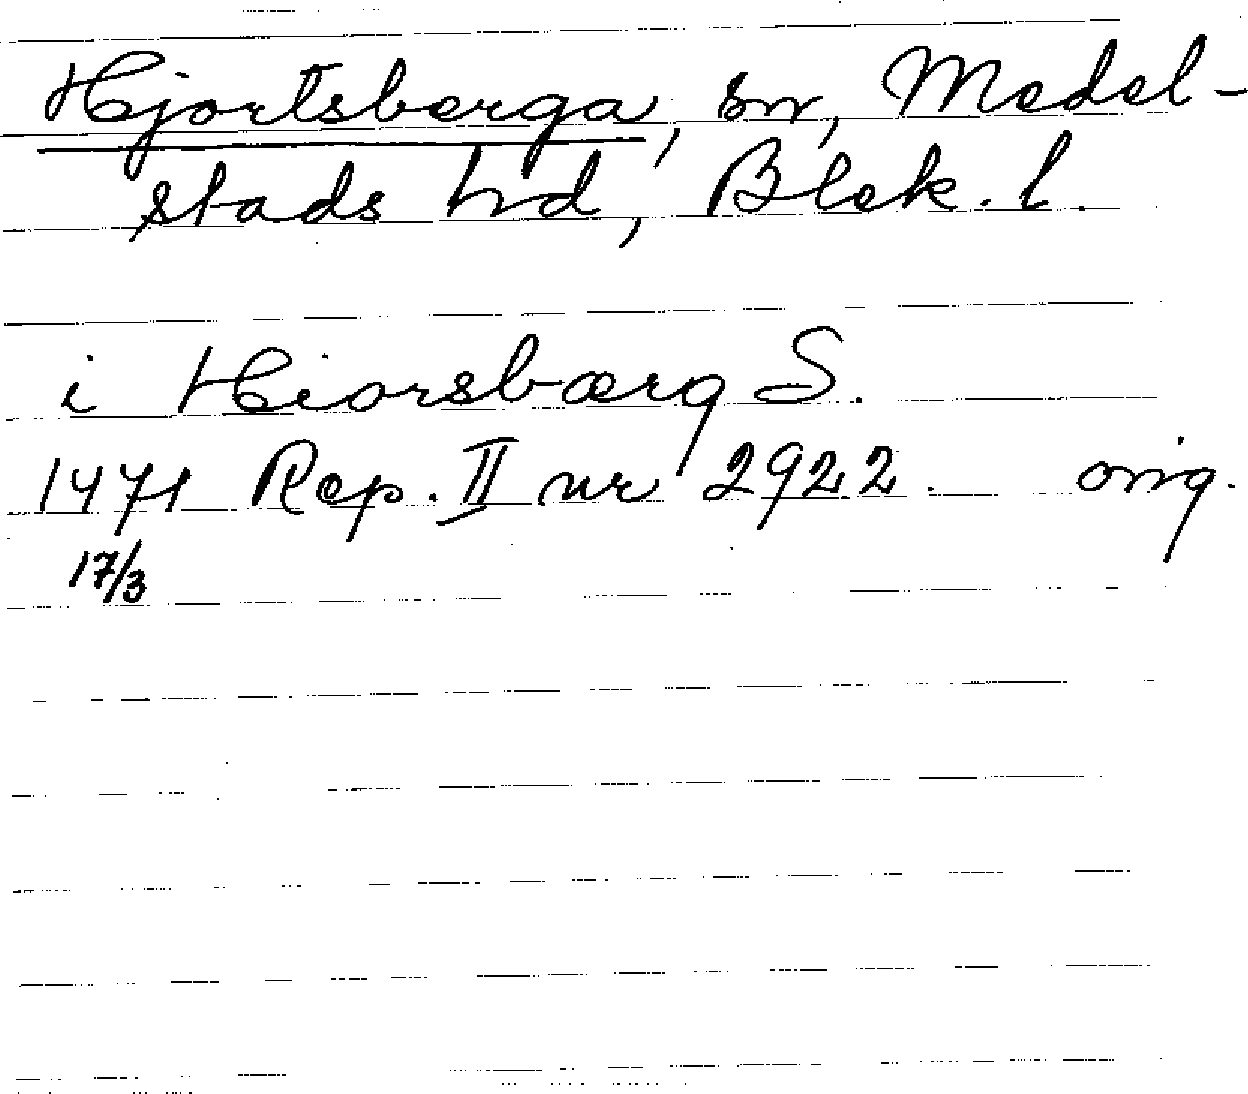 Hjortsberga, sn, Medel-
stads hd, Blek. l.
i Hiorsbærg S.
1471 Rep. II nr 2922. orig.
17/3